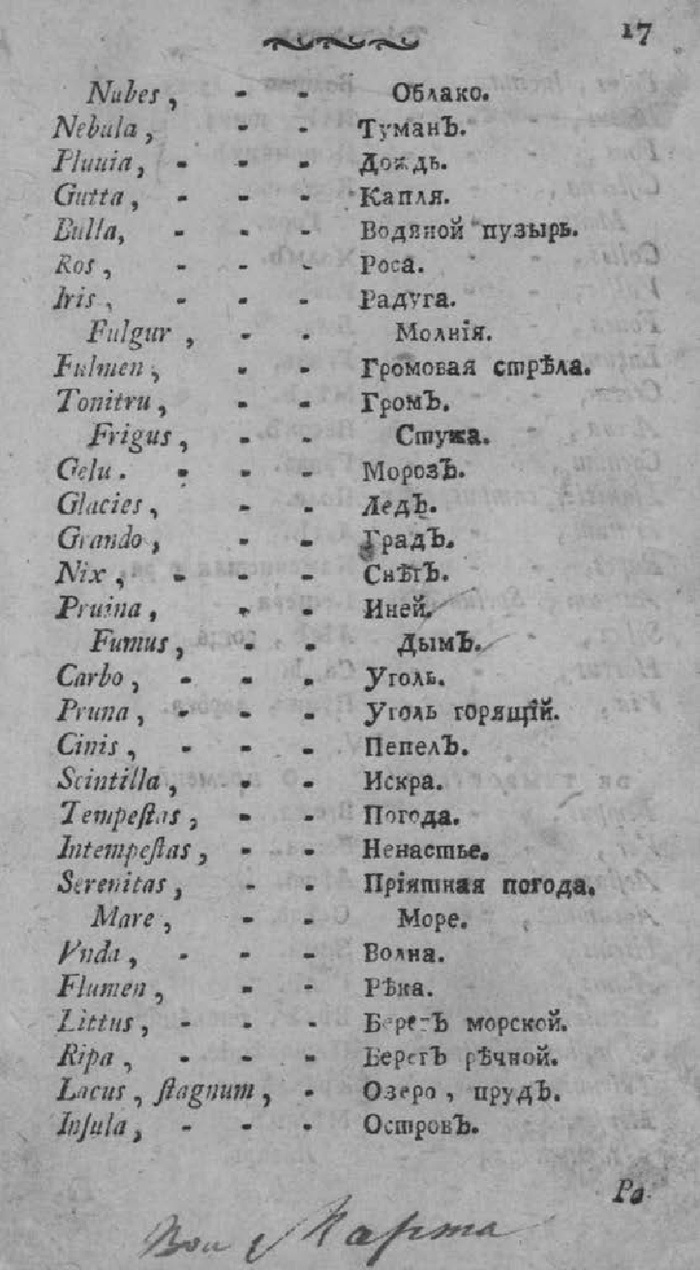 17
Nubes, - - Облако.
Nebula, - - Туманъ.
Pluuia, - - - Дождь.
Gutta, - - - Капля.
Bulla, - - - Водяной пузырь.
Ros, - - - Роса.
Iris, - - - Радуга.
Fulgur, - - Молнія.
Fulmen, - - Громовая стрѣла.
Tonitru, - - Громъ.
Frigus, - - Стужа.
Gelu. - - - Морозъ.
Glacies, - - Ледъ.
Grando, - - Градъ.
Nix, - - - Снѣгъ.
Pruina, - - Иней.
Fumus, - - Дымъ.
Carbo, - - - Уголь.
Pruna, - - - Уголь горящій.
Cinis, - - - Пепелъ.
Scintilla, - - Искра.
Tempeſtas, - - Погода.
Intempeſtas, - - Ненастье.
Serenitas, - - Пріятная погода.
Mare, - - Море.
Vnda, - - - Волна.
Flumen, - - Рѣка.
Littus, - - - Берегъ морской.
Ripa, - - - Берегъ рѣчной.
Lacus, ſtagnum, - Озеро, прудъ.
Inſula, - - - Островъ.
Pa
Марта